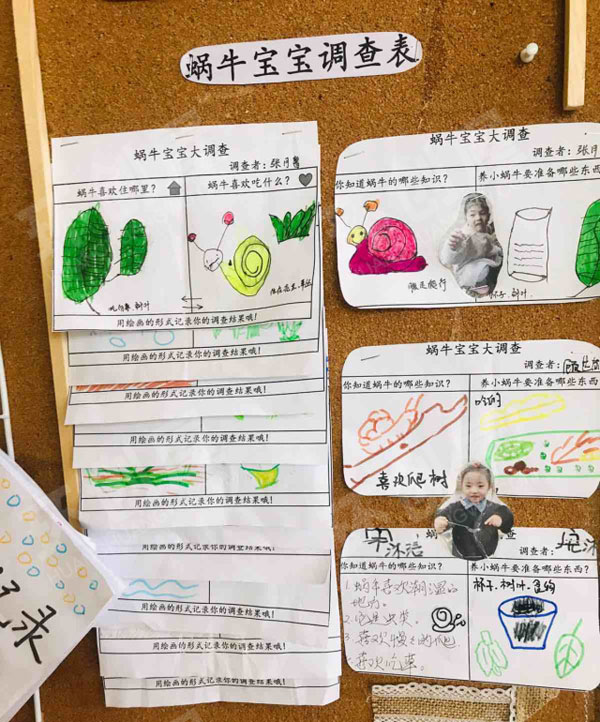 蜗牛宝宝调查表
蜗牛宝宝大调查
调查者:张月
蜗牛喜欢住哪里?
蜗牛喜欢吃什么?
树叶
用绘画的形式记录你的调查结果哦!
用绘画的形式记录你的调查结果哦!
用绘画的形式记录你的调查结果哦!
用绘画的形式记录你的调查结果哦!
用绘画的形式记录你的调查结果哦!
用绘画的形式记录你的调查结果哦!
用绘画的形式记录你的调查结果哦!
用绘画的形式记录你的调查结果哦!
用绘画的形式记录你的调查结果哦!
蜗牛宝宝大调查
调查者:张月
你知道蜗牛的哪些知识?
养小蜗牛要准备哪些东西
爬行
杯子.树叶.
蜗牛宝宝大调查
调查者:
你知道蜗牛的哪些知识?
养小蜗牛要准备哪些东西
喜欢爬树
蜗牛
查
调查者:
沐浩
你知道蜗牛的哪些知识?
养小蜗牛要准备哪些东西?
1.蜗牛喜欢潮湿的
地方。
2.它是虫类。
3.喜欢慢慢的爬
喜欢吃草。
杯子.树叶.食物
录